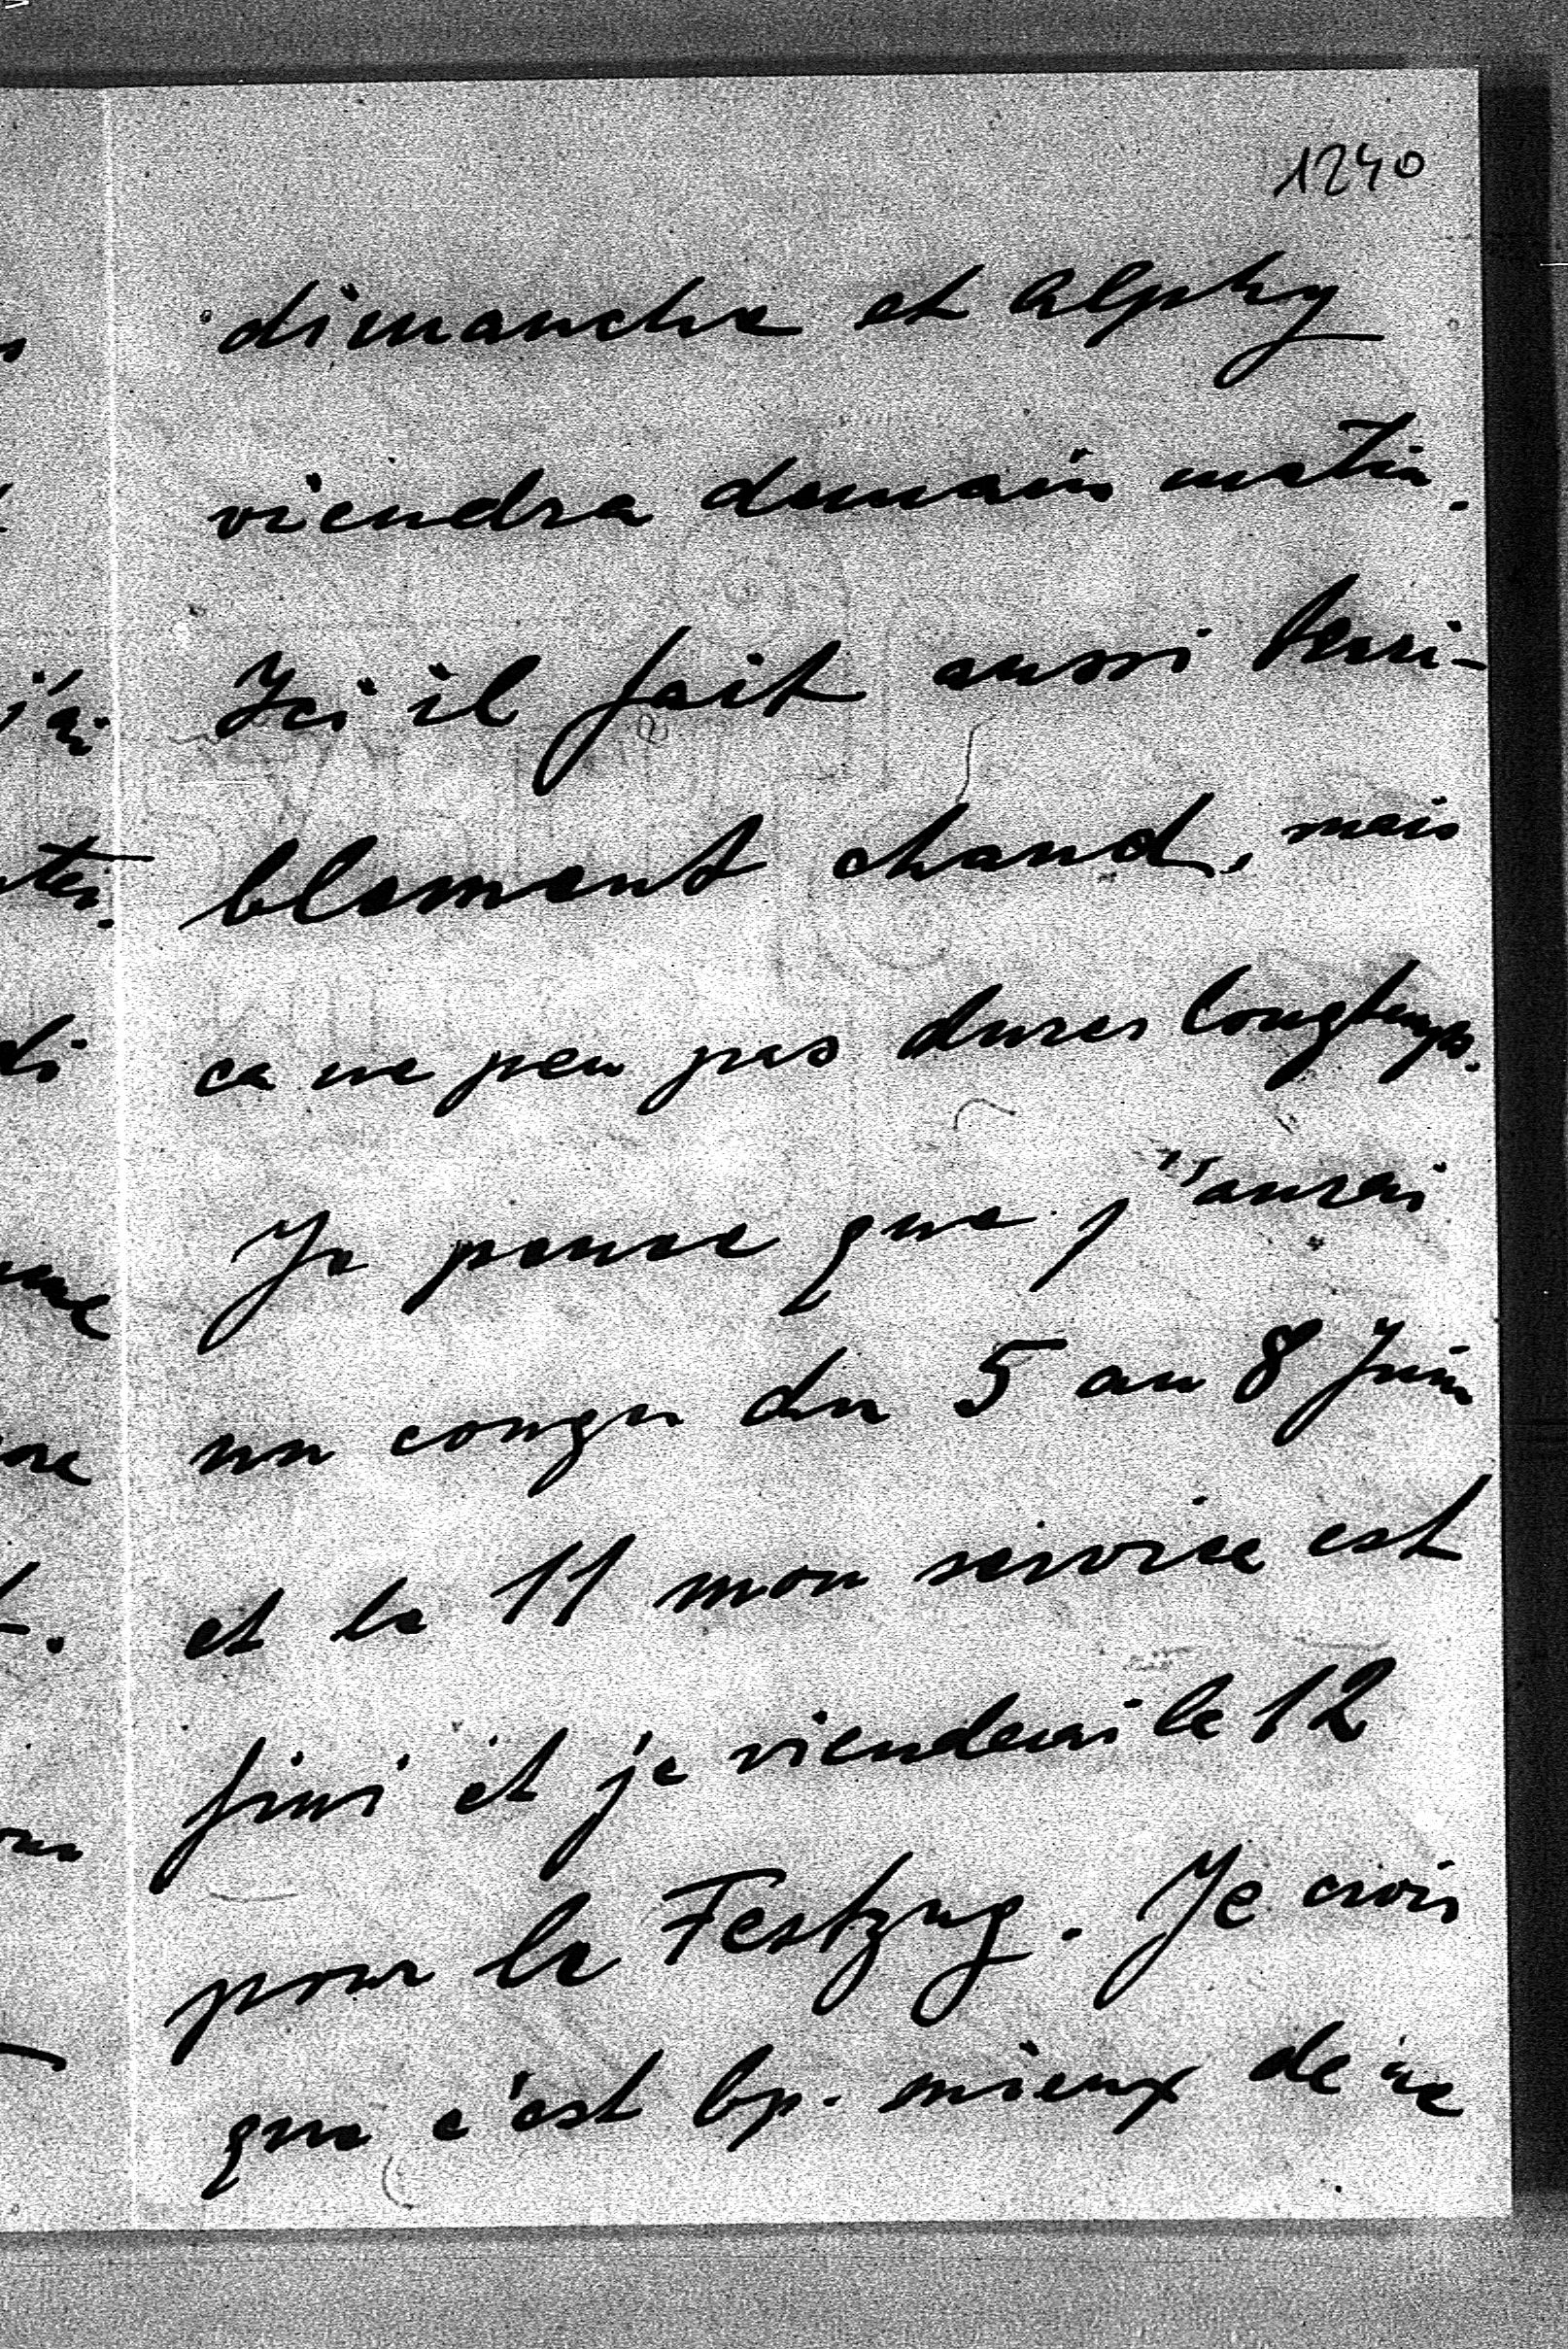 1240
dimanche et Alphy
viendra demain matin.
Ici il fait aussi terri-
blement chaud, mais
ca ne peu pas durer longtemps.
Je pense que j'aurai
un congu du 5 au 8 Juin
et le 11 mon servise est
fini et je vienderai le 12
pour le Festzug. Je crois
que c'est bp. mieux de ne